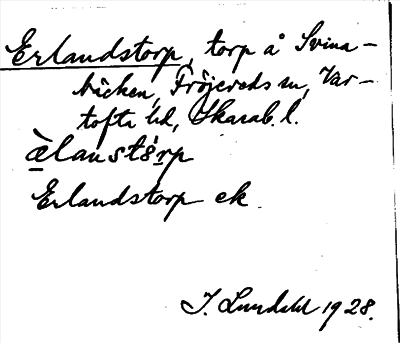 Erlandstorp, torp å Svina-
bäcken, Fröjereds sn, Var-
tofta hd, Skarab. l.
àlanstó̱rp
Erlandstorp ek.
I. Lundahl 1928.